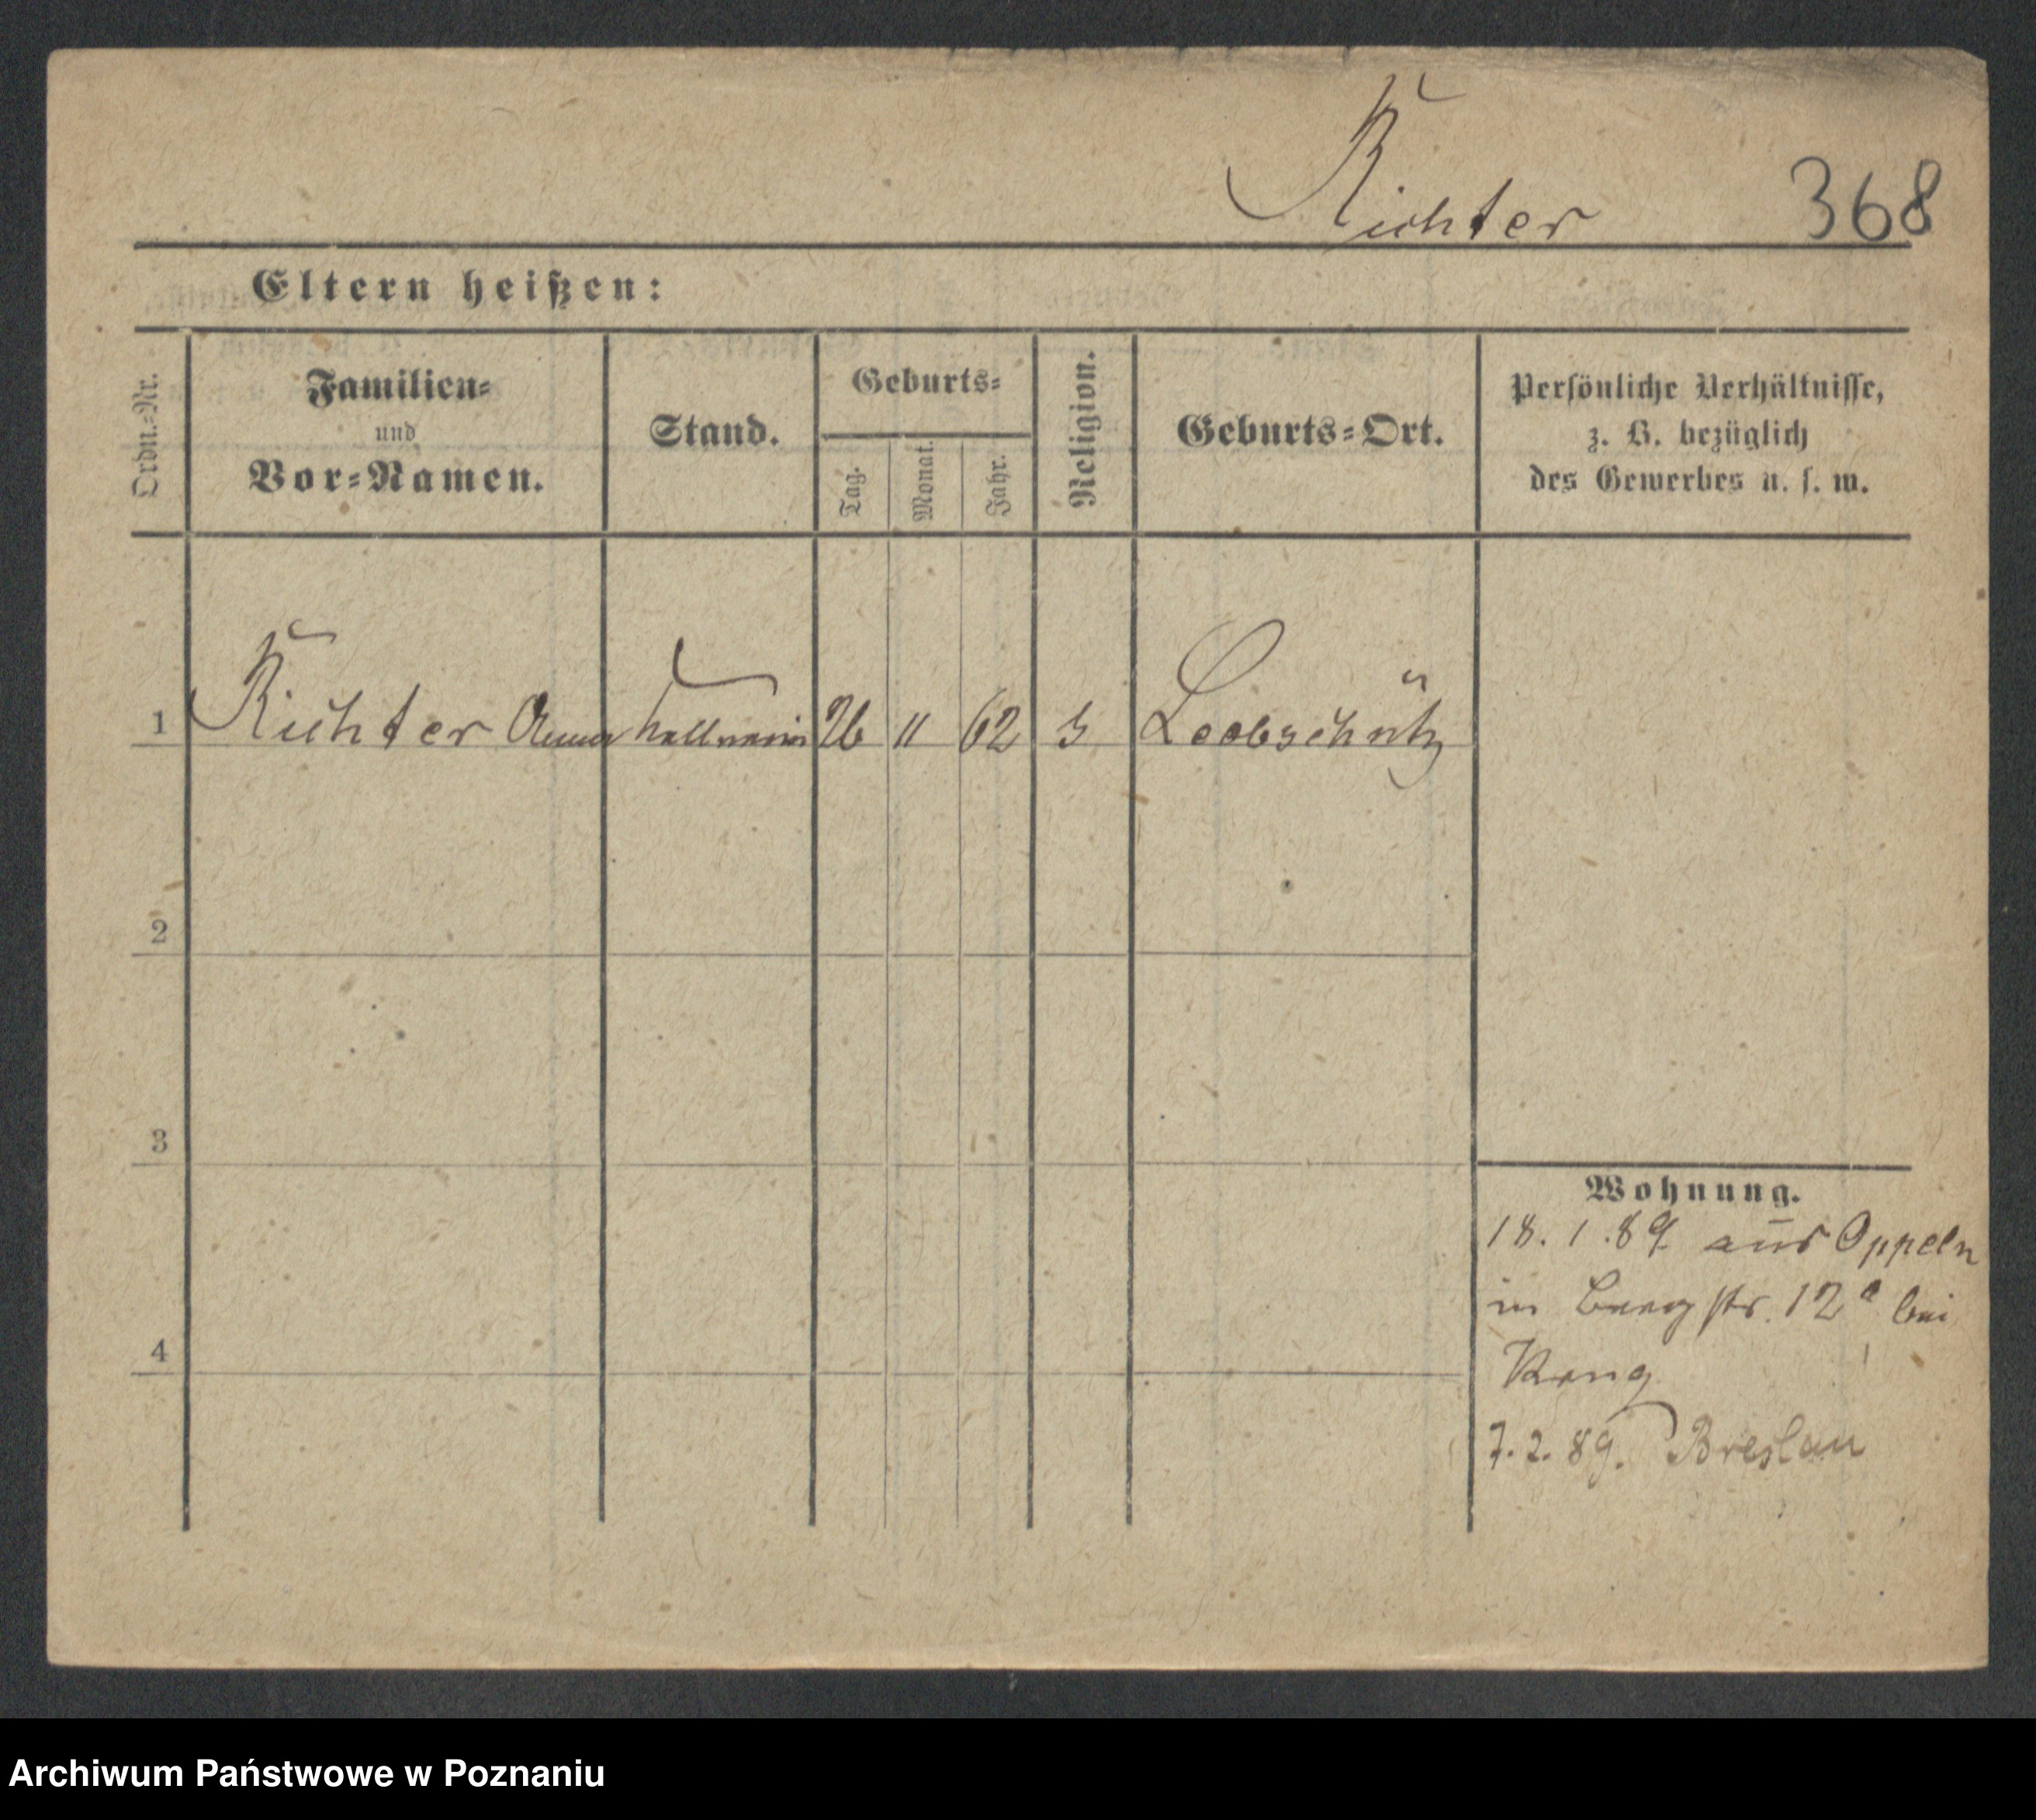 Richter 368
Eltern heißen:
Ordn.-Nr.
Familien- und Vor-Namen.
Stand.
Geburts-
Tag.
Monat.
Jahr.
Religion.
Geburts-Ort.
Persönliche Verhältnisse,
z. B. bezüglich
des Gewerbes u. s. w.
1 Richter Anna Kellnerin 26 11 62 Leobschütz
2
3
4
Wohnung.
18. 1. 89 aus Oppeln
in Bergstr. 12a bei
7. 2. 89. Breslau
Archiwum Państwowe w Poznaniu